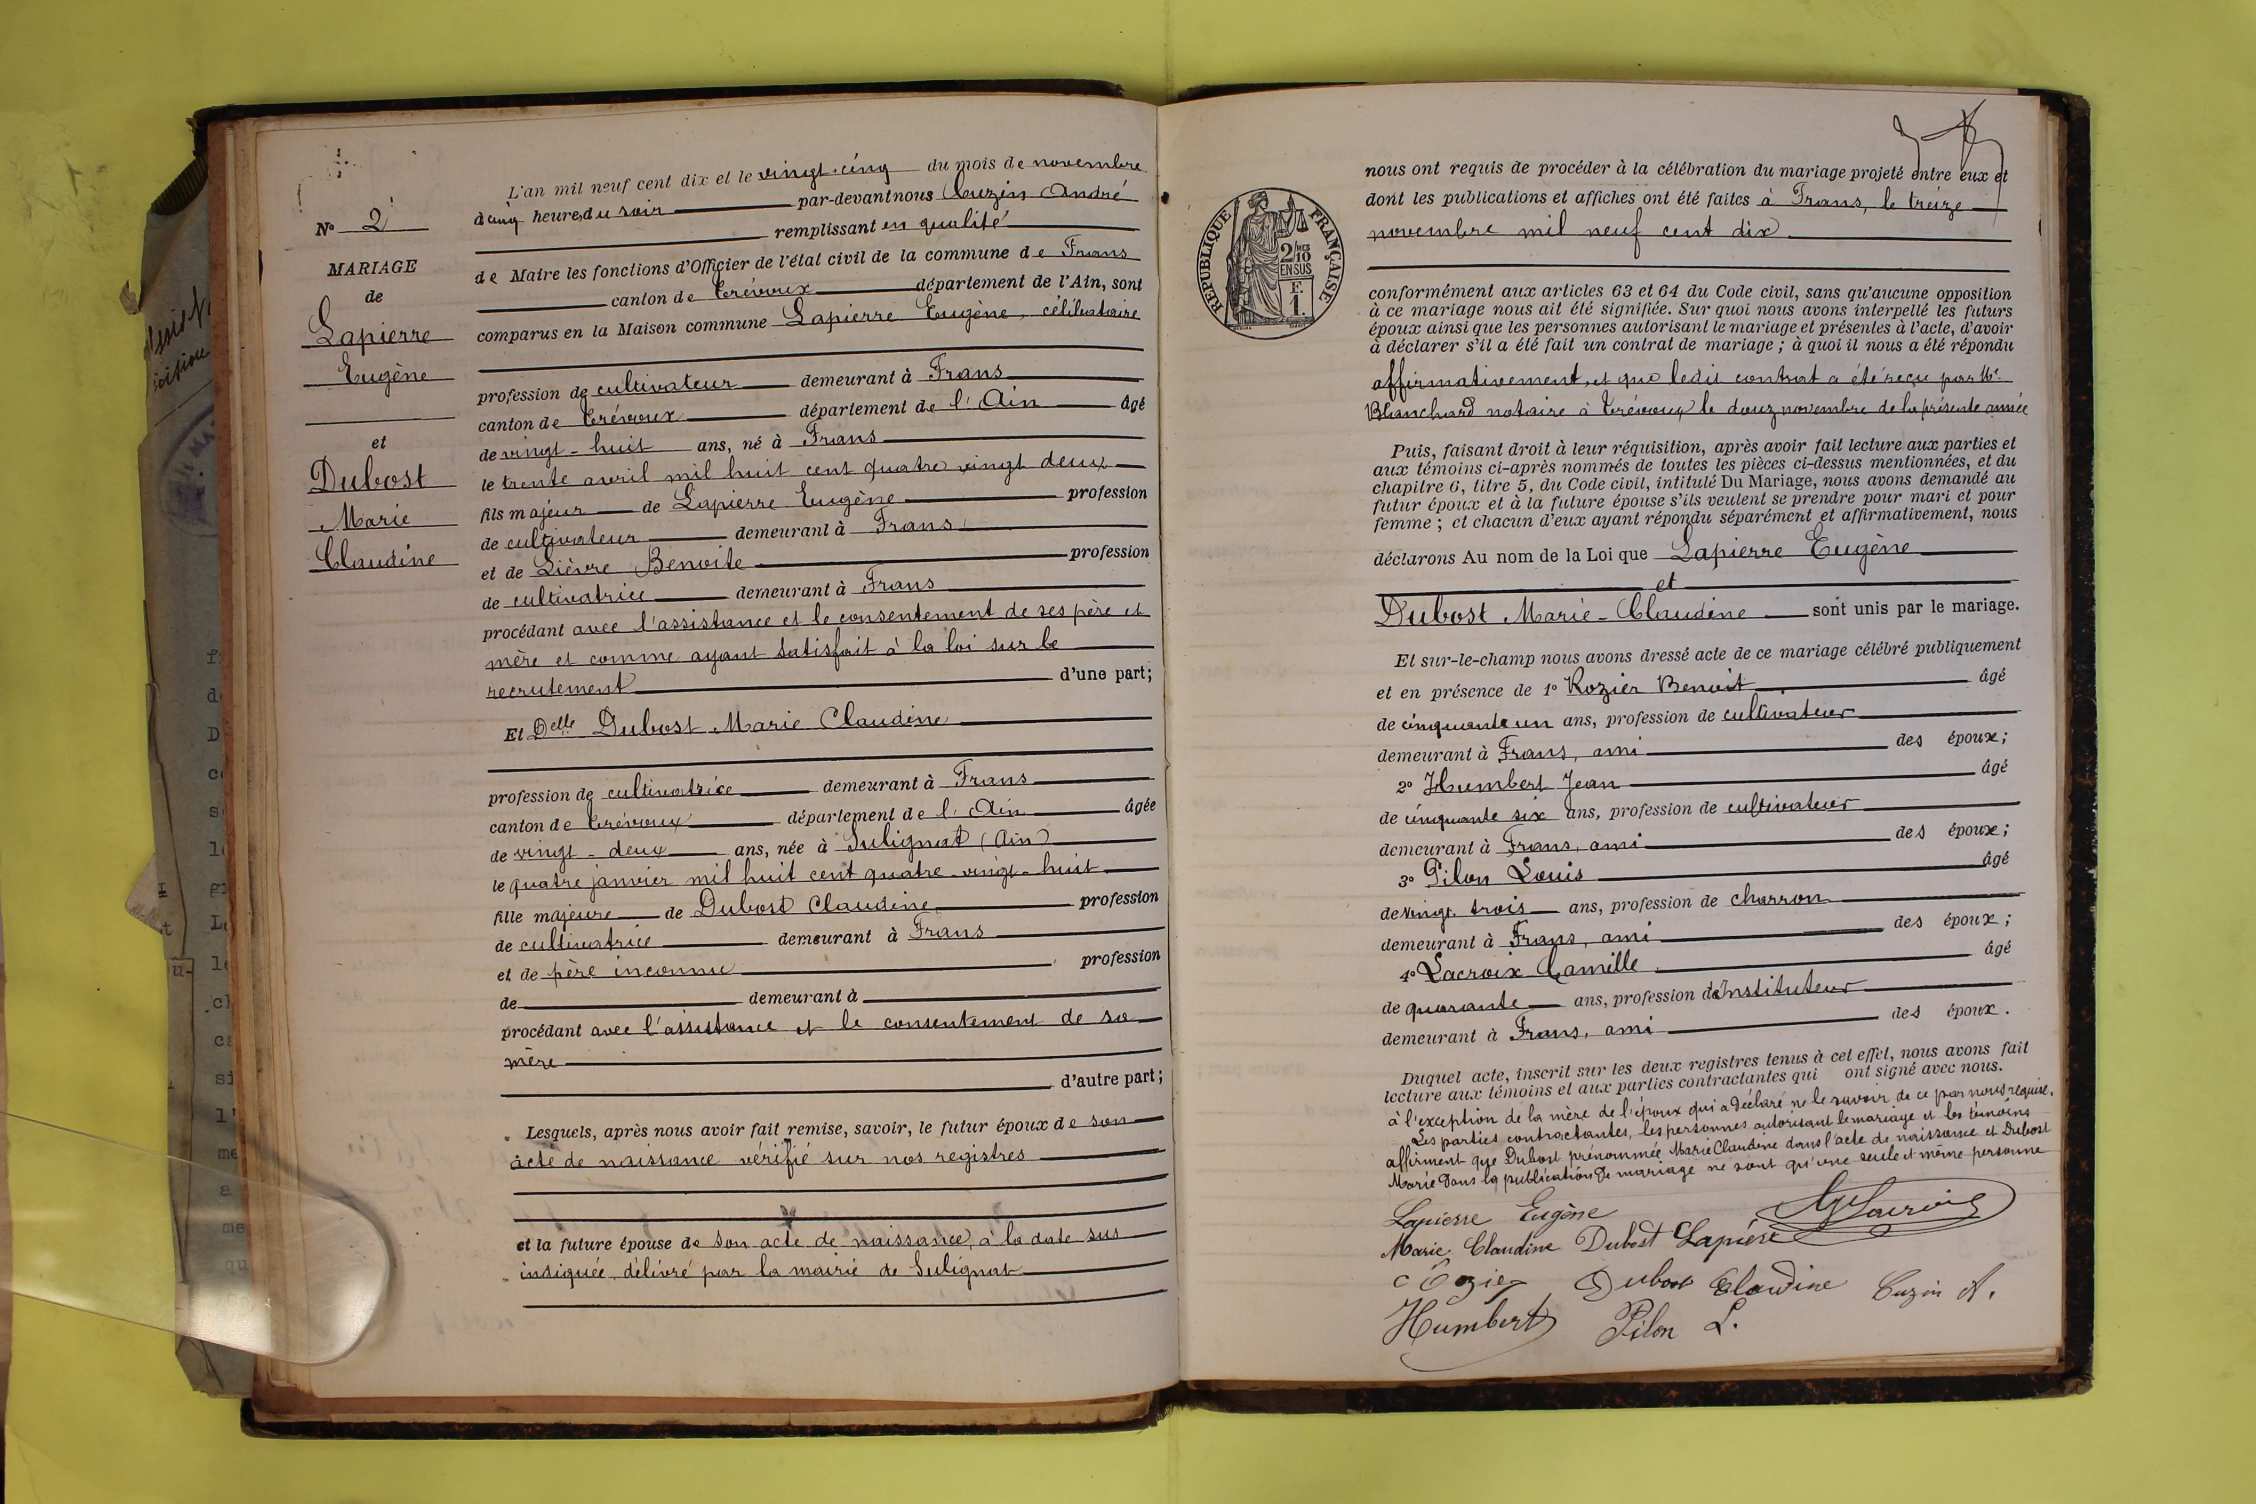 N° 2
MARIAGE
de
Lapierre
Eugène
et
Dubost
Marie
Claudine
L'an mil neuf cent dix et le vingt-cinq du mois de novembre
à cinq heures du soir par-devant nous Cuzin André
remplissant en qualité
de Maire les fonctions d'Officier de l'état civil de la commune de Frans
canton de Trévoux département de l'Ain, sont
comparus en la Maison commune Lapierre Eugène, célibataire
profession de cultivateur demeurant à Frans
canton de Trévoux département de l'Ain âgé
de vingt-huit ans, né à Frans
le trente avril mil huit cent quatre vingt deux
fils majeur de Lapierre Eugène profession
de cultivateur demeurant à Frans
et de Lièvre Benoite profession
de cultivatrice demeurant à Frans
procédant avec l'assistance et le consentement de ses père et
mère et comme ayant satisfait à la loi sur le
recrutement d'une part;
Et Delle Dubost Marie Claudine
profession de cultivatrice demeurant à Frans
canton de Trévoux département de l'Ain âgée
de vingt-deux ans, née à Sulignat (Ain)
le quatre janvier mil huit cent quatre-vingt-huit
fille majeure de Dubost Claudine profession
de cultivatrice demeurant à Frans
et de père inconnu profession
de demeurant à
procédant avec l'assistance et le consentement de sa
mère
d'autre part;
Lesquels, après nous avoir fait remise, savoir, le futur époux de son
acte de naissance vérifié sur nos registres
et la future épouse de son acte de naissance, à la date sus
indiquée, délivré par la mairie de Sulignat
RÉPUBLIQUE FRANÇAISE
2/10
EN SUS
F.
1.
nous ont requis de procéder à la célébration du mariage projeté entre eux et
dont les publications et affiches ont été faites à Frans, le treize
novembre mil neuf cent dix
conformément aux articles 63 et 64 du Code civil, sans qu'aucune opposition
à ce mariage nous ait été signifiée. Sur quoi nous avons interpellé les futurs
époux ainsi que les personnes autorisant le mariage et présentes à l'acte, d'avoir
à déclarer s'il a été fait un contrat de mariage ; à quoi il nous a été répondu
affirmativement, et que ledit contrat a été reçu par Me
Blanchard notaire à Trévoux le douz novembre de la présente année
Puis, faisant droit à leur réquisition, après avoir fait lecture aux parties et
aux témoins ci-après nommés de toutes les pièces ci-dessus mentionnées, et du
chapitre 6, titre 5, du Code civil, intitulé Du Mariage, nous avons demandé au
futur époux et à la future épouse s'ils veulent se prendre pour mari et pour
femme ; et chacun d'eux ayant répondu séparément et affirmativement, nous
déclarons Au nom de la Loi que Lapierre Eugène
et
Dubost Marie-Claudine sont unis par le mariage.
Et sur-le-champ nous avons dressé acte de ce mariage célébré publiquement
et en présence de 1° Rozier Benoit âgé
de cinquante un ans, profession de cultivateur
demeurant à Frans, ami des époux;
2° Humbert Jean âgé
de cinquante six ans, profession de cultivateur
demeurant à Frans, ami des époux;
3° Pilon Louis âgé
de vingt trois ans, profession de charron
demeurant à Frans, ami des époux;
4° Lacroix Camille âgé
de quarante ans, profession d'Instituteur
demeurant à Frans, ami des époux.
Duquel acte, inscrit sur les deux registres tenus à cet effet, nous avons fait
lecture aux témoins et aux parties contractantes qui ont signé avec nous.
à l'exception de la mère de l'époux qui a déclaré ne le savoir de ce par nous requise.
Les parties contractantes, les personnes autorisant le mariage et les témoins
affirment que Dubost prénommée Marie Claudine dans l'acte de naissance et Dubost
Marie dans la publication de mariage ne sont qu'une seule et même personne
Lapierre Eugène Lacroix
Marie Claudine Dubost Lapierre
Dubost Claudine Cuzin A.
Humbert Pilon L.